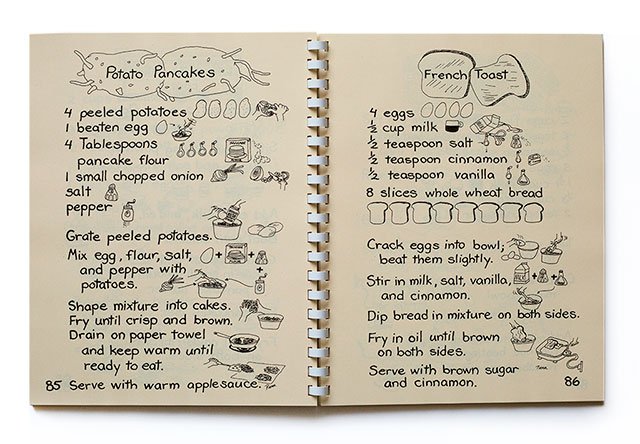 Potato Pancakes
4 peeled potatoes
1 beaten egg
4 Tablespoons
pancake flour
1 small chopped onion
salt
pepper
Grate peeled potatoes.
Mix egg, flour, salt,
and pepper with
potatoes.
Shape mixture into cakes.
Fry until crisp and brown.
Drain on paper towel
and keep warm until
ready to eat.
85 Serve with warm applesauce.
French Toast
4 eggs
½ cup milk
½ teaspoon salt
½ teaspoon cinnamon
½ teaspoon vanilla
8 slices whole wheat bread
Crack eggs into bowl;
beat them slightly.
Stir in milk, salt, vanilla,
and cinnamon.
Dip bread in mixture on both sides.
Fry in oil until brown
on both sides.
Serve with brown sugar
and cinnamon.
86